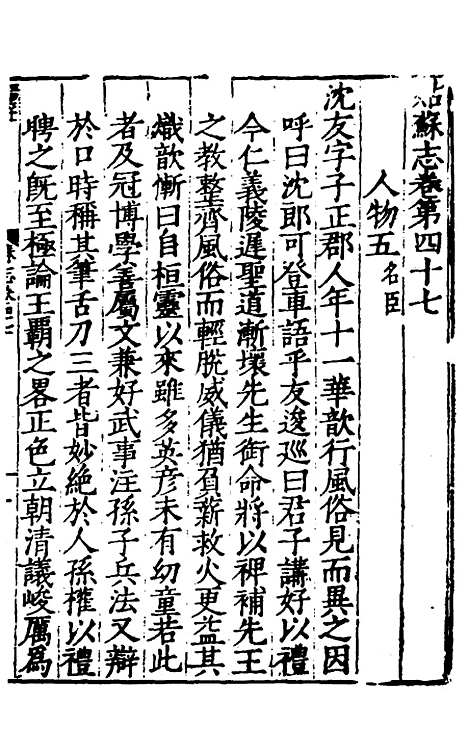 姑蘇志卷第四十七
人物五 名臣
沈友字子正郡人年十一華歆行風俗見而異之因
呼曰沈郎可登車語乎友逡巡曰君子講好以禮
今仁義陵遲聖道漸壞先生銜命將以裨補先王
之教整齊風俗而輕脫威儀猶負薪救火更益其
熾歆慚曰自桓靈以來雖多英彦未有幼童若此
者及冠博學善屬文兼好武事注孫子兵法又辯
於口時稱其筆舌刀三者皆妙絶於人孫權以禮
聘之旣至極論王覇之畧正色立朝清議峻厲爲